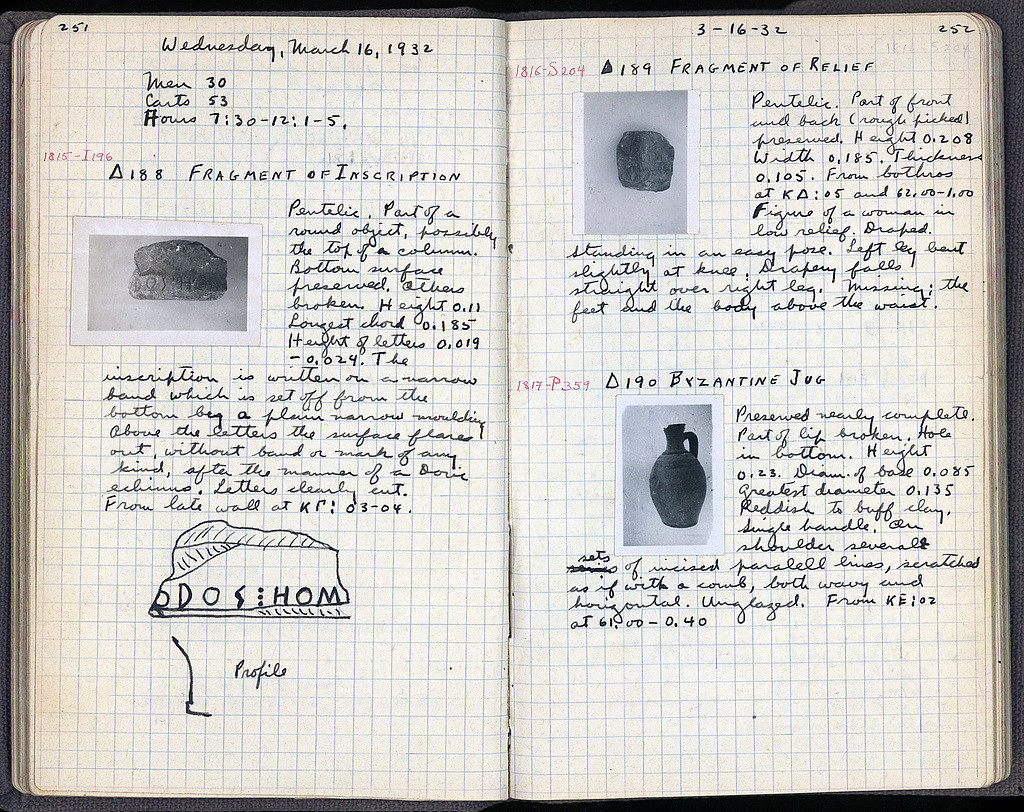 251
Wednesday, March 16, 1932
Men 30
Carts 53
Hours 7:30-12:1-5.
1815-I196
Δ188 FRAGMENT OF INSCRIPTION
Pentelic. Part of a
round object, possibly
the top of a column.
Bottom surface
preserved. Others
broken. Height 0.11
Longest chord 0.185
Height of letters 0.019
-0.024. The
inscription is written on a narrow
band which is set off from the
bottom by a plain narrow moulding
Above the letters the surface flares
out, without band or mark of any
kind, after the manner of a Doric
echinus. Letters clearly cut.
From late wall at ΚΓ: 03-04.
DOS:HOM
Profile
3-16-32
252
1816-S204
Δ189 FRAGMENT OF RELIEF
Pentelic. Part of front
and back (rough picked)
preserved. Height 0.208
Width 0.185. Thickness
0.105. From bothros
at ΚΔ:05 and 62.00-1.00
Figure of a woman in
low relief. Draped.
standing in an easy pose. Left leg bent
slightly at knee. Drapery falls
straight over right leg. Missing: the
feet and the body above the waist.
1817-P359
Δ190 BYZANTINE JUG
Preserved nearly complete.
Part of lip broken. Hole
in bottom. Height
0.23. Diam. of base 0.085
Greatest diameter 0.135
Reddish to buff clay.
Single handle. On
shoulder several
sets of incised paralell lines, scratched
as if with a comb, both wavy and
horizontal. Unglazed. From ΚΕ:02
at 61.00-0.40